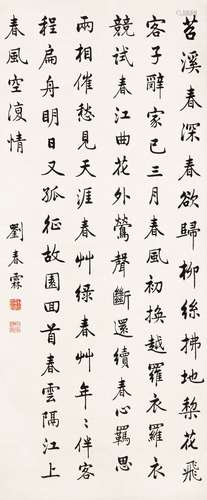 苕溪春深春欲歸柳絲拂地梨花飛
客子辭家已三月春風初換越羅衣羅衣
競試春江曲花外鶯聲斷還續春心羈思
兩相催愁見天涯春艸綠春艸年〻伴客
程扁舟明日又孤征故園回首春雲隔江上
春風空復情
劉春霖